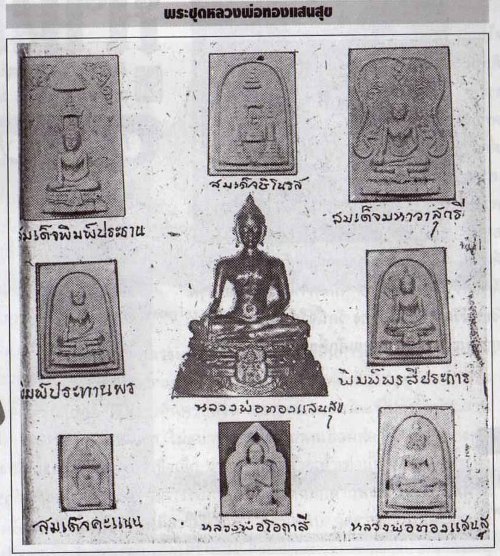 พระชุดหลวงพ่อทองแสนสุข
สมเด็จชิโนรส
สมเด็จพิมพ์ประธาน
สมเด็จมหาวาสุกรี
พิมพ์ประทานพร
หลวงพ่อทองแสนสุข
พิมพ์พรสี่ประการ
สมเด็จคะแนน
หลวงพ่อโอภาสี
หลวงพ่อทองแสนสุ